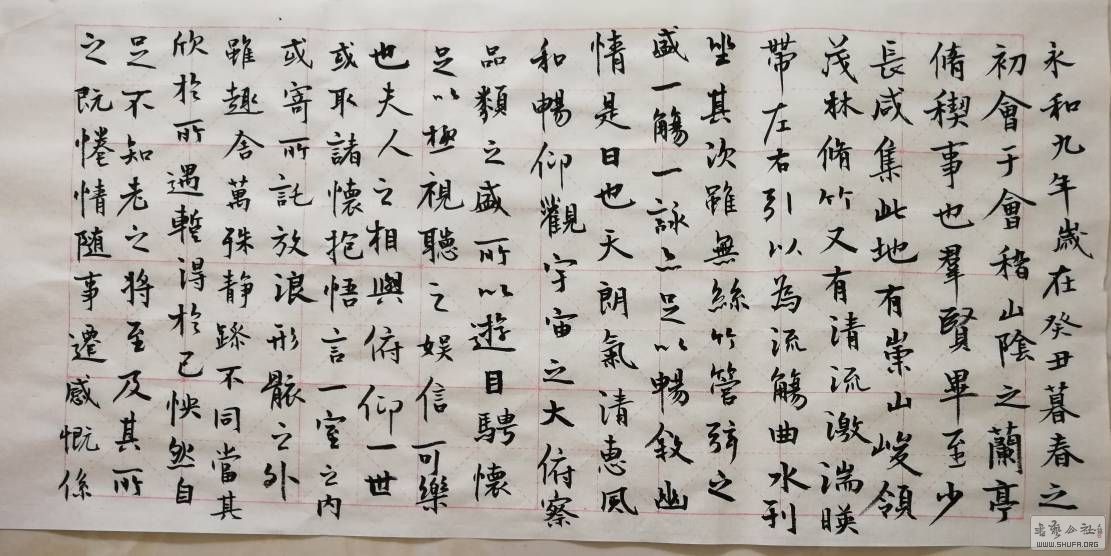 永和九年歲在癸丑暮春之
初會于會稽山陰之蘭亭
脩稧事也羣賢畢至少
長咸集此地有崇山峻領
茂林脩竹又有清流激湍暎
帶左右引以為流觴曲水列
坐其次雖無絲竹管弦之
盛一觴一詠亦足以暢敘幽
情是日也天朗氣清惠風
和暢仰觀宇宙之大俯察
品類之盛所以遊目騁懷
足以極視聽之娛信可樂
也夫人之相與俯仰一世
或取諸懷抱悟言一室之內
或寄所託放浪形骸之外
雖趣舍萬殊靜躁不同當其
欣於所遇暫得於己怏然自
足不知老之將至及其所
之既惓情随事遷感慨係
书艺公社
WWW.SHUFA.ORG